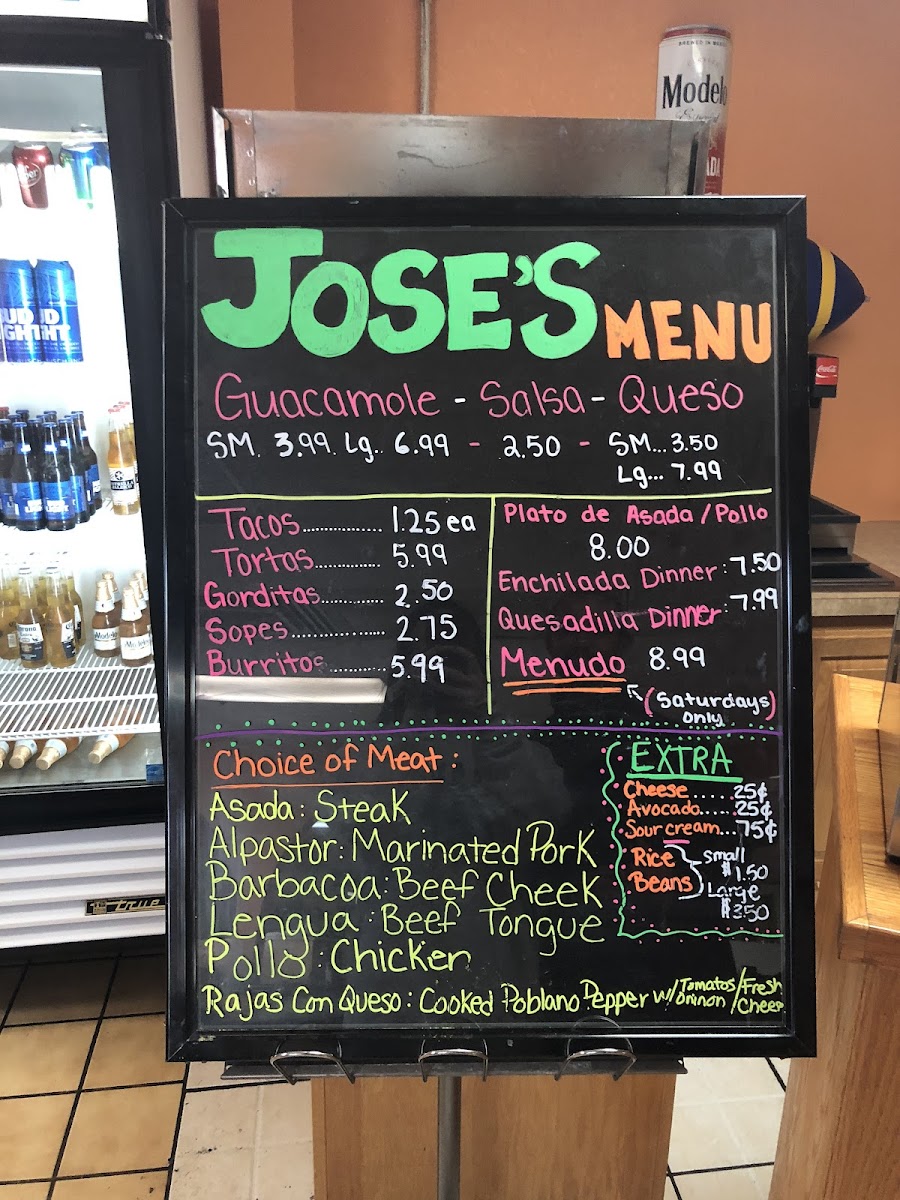 BREWED IN
Modelo
JOSE'S MENU
Guacamole - Salsa - Queso
SM. 3.99 Lg.. 6.99 - 2.50 - SM... 3.50
Lg... 7.99
Tacos.............. 1.25 ea
Tortas............. 5.99
Gorditas............ 2.50
Sopes............... 2.75
Burritos.......... 5.99
Plato de Asada/Pollo
8.00
Enchilada Dinner: 7.50
Quesadilla Dinner: 7.99
Menudo 8.99
(Saturdays)
only
Choice of Meat:
Asada: Steak
Alpastor: Marinated Pork
Barbacoa: Beef Cheek
Lengua: Beef Tongue
Pollo: Chicken
Rajas Con Queso: Cooked Poblano Pepper w/ Tomatos/Oninon/Fresh Cheese
EXTRA
Cheese..... 25¢
Avocado..... 25¢
Sour cream... 75¢
Rice
Beans
Small
$1.50
Large
$3.50
Coca-Cola
BUD LIGHT
Corona
Modelo
Modelo
True